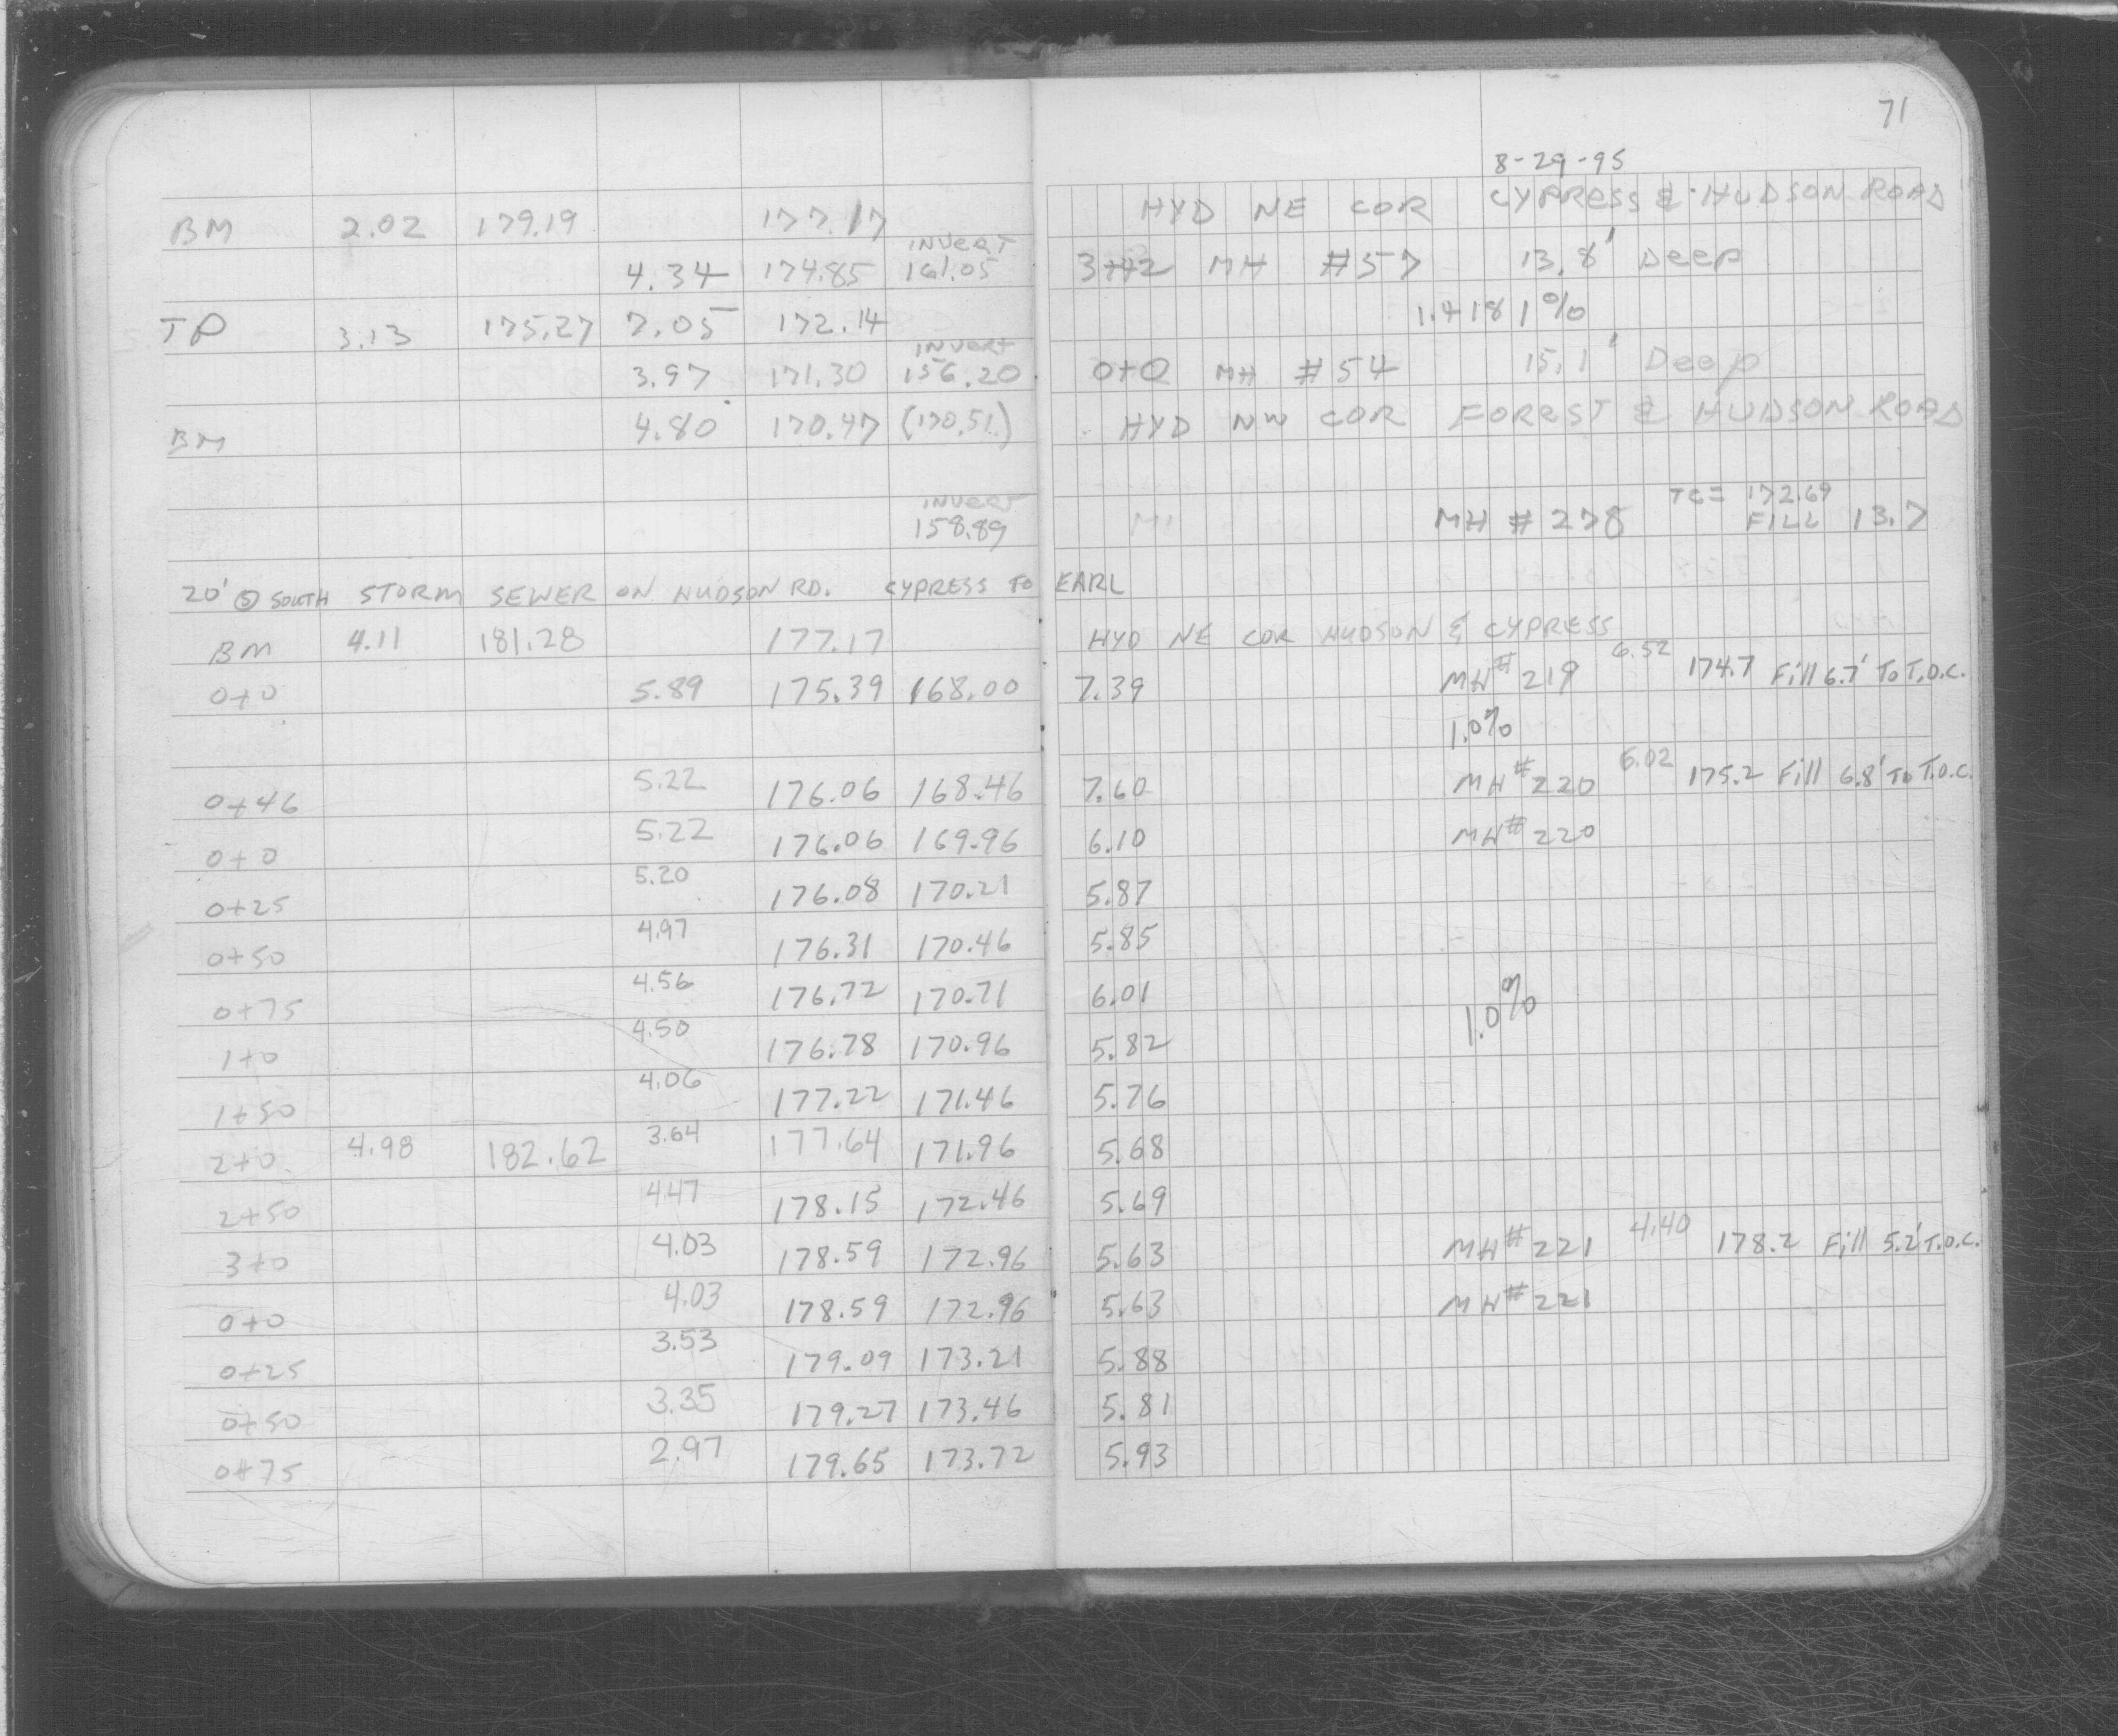 71
8-29-95
BM 2.02 179.19 177.17 HYD NE COR CYPRESS & HUDSON ROAD
INVERT
4.34 174.85 161.05 3+42 MH #57 13.8' Deep
1.4181%
TP 3.13 175.27 7.05 172.14
INVERT
3.97 171.30 156.20 0+0 MH #54 15.1' Deep
BM 4.80 170.47 (170.51) HYD NW COR FOREST & HUDSON ROAD
INVERT TC= 172.69
158.89 MH # 278 FILL 13.7
20' SOUTH STORM SEWER ON HUDSON RD. CYPRESS TO EARL
BM 4.11 181.28 177.17 HYD NE COR HUDSON & CYPRESS
0+0 5.89 175.39 168.00 7.39 MH# 219 6.52 174.7 Fill 6.7' To T.O.C.
1.0%
0+46 5.22 176.06 168.46 7.60 MH# 220 6.02 175.2 Fill 6.8' To T.O.C.
0+0 5.22 176.06 169.96 6.10 MH# 220
0+25 5.20 176.08 170.21 5.87
0+50 4.97 176.31 170.46 5.85
0+75 4.56 176.72 170.71 6.01 1.0%
1+0 4.50 176.78 170.96 5.82
1+50 4.06 177.22 171.46 5.76
2+0 4.98 182.62 3.64 177.64 171.96 5.68
2+50 4.47 178.15 172.46 5.69
3+0 4.03 178.59 172.96 5.63 MH# 221 4.40 178.2 Fill 5.2' T.O.C.
0+0 4.03 178.59 172.96 5.63 MH# 221
0+25 3.53 179.09 173.21 5.88
0+50 3.35 179.27 173.46 5.81
0+75 2.97 179.65 173.72 5.93